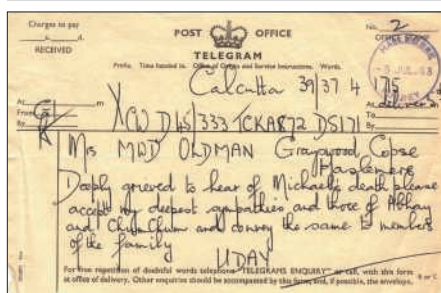 Charges to pay
s. d.
RECEIVED
POST OFFICE
TELEGRAM
No. 2
Prefix. Time handed in. Office of Origin and Service Instructions. Words.
Calcutta 39/37 4 175
At m
From
By
At
To
By
XCW D45/333 TCKA872 DS171
Mrs MWD OLDMAN Grayswood Copse
Haslemere
Deeply grieved to hear of Michaels death please
accept my deepest sympathies and those of Abhay
and ChumChum and convey the same to members
of the family
UDAY
For free repetition of doubtful words telephone "TELEGRAMS ENQUIRY" or call, with this form
at office of delivery. Other enquiries should be accompanied by this form, and, if possible, the envelope.